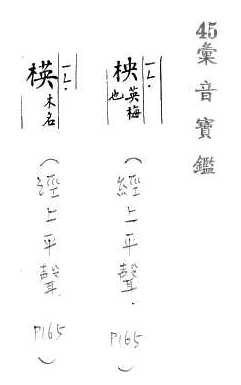 45彙音寶鑑
柍英梅也
(經上平聲. P165)
楧木名
(經上平聲. P165)